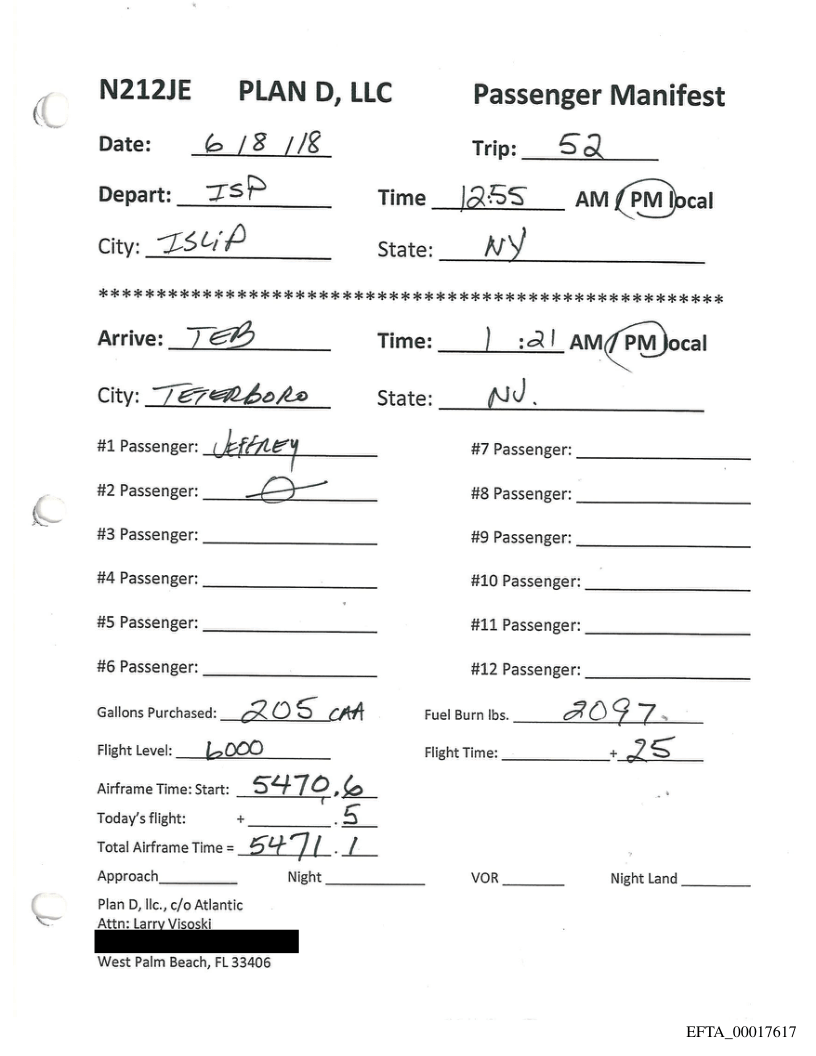 N212JE PLAN D, LLC Passenger Manifest
Date: 6 / 8 / 18 Trip: 52
Depart: ISP Time 12:55 AM / PM local
City: ISLIP State: NY
******************************************************
Arrive: TEB Time: 1 :21 AM / PM local
City: TETERBORO State: NJ.
#1 Passenger: JEFFREY #7 Passenger:
#2 Passenger: #8 Passenger:
#3 Passenger: #9 Passenger:
#4 Passenger: #10 Passenger:
#5 Passenger: #11 Passenger:
#6 Passenger: #12 Passenger:
Gallons Purchased: 205 CAA Fuel Burn lbs. 2097.
Flight Level: 6000 Flight Time: + 25
Airframe Time: Start: 5470.6
Today's flight: + .5
Total Airframe Time = 5471.1
Approach Night VOR Night Land
Plan D, llc., c/o Atlantic
Attn: Larry Visoski
West Palm Beach, FL 33406
EFTA_00017617